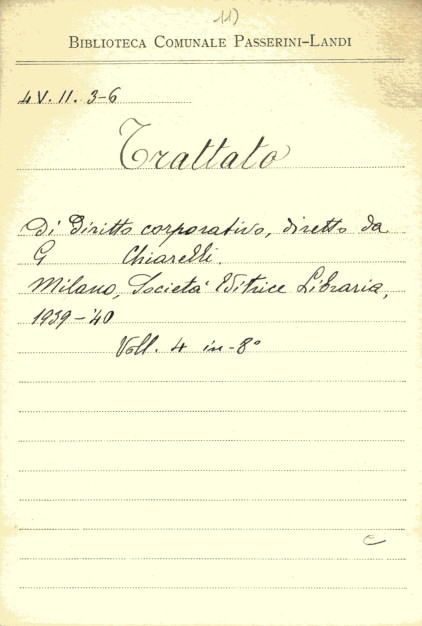 11)
BIBLIOTECA COMUNALE PASSERINI-LANDI
4 V. 11. 3-6
Trattato
di Diritto corporativo, diretto da
G Chiarelli.
Milano, Società Editrice Libraria,
1939-'40
Voll. 4 in-8°
e